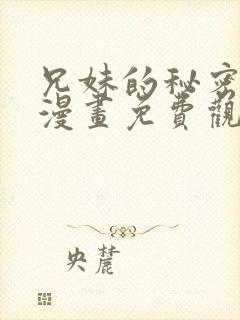 兄妹的秘密
漫畫免費觀
央麓